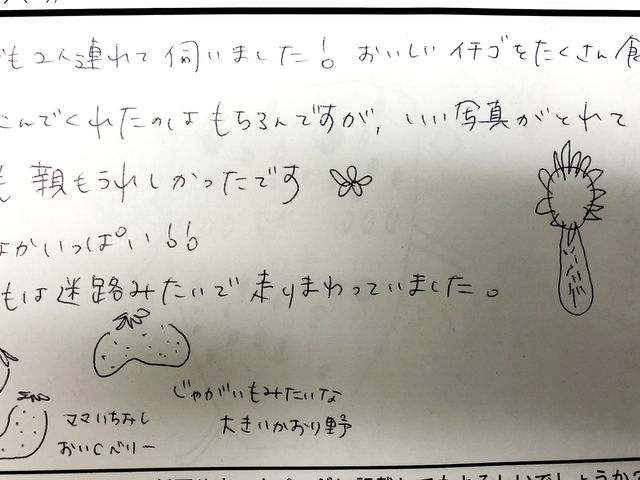 も2人連れて伺いました!おいしいイチゴをたくさん食
んでくれたのはもちろんですが、いい写真がとれて
親もうれしかったです
なかいっぱい!!
もは迷路みたいで走りまわっていました。
じゃがいもみたいな
大きいかおり野
ママいちおし
おいCベリー
ページに記載してもよろしいでしょうか?